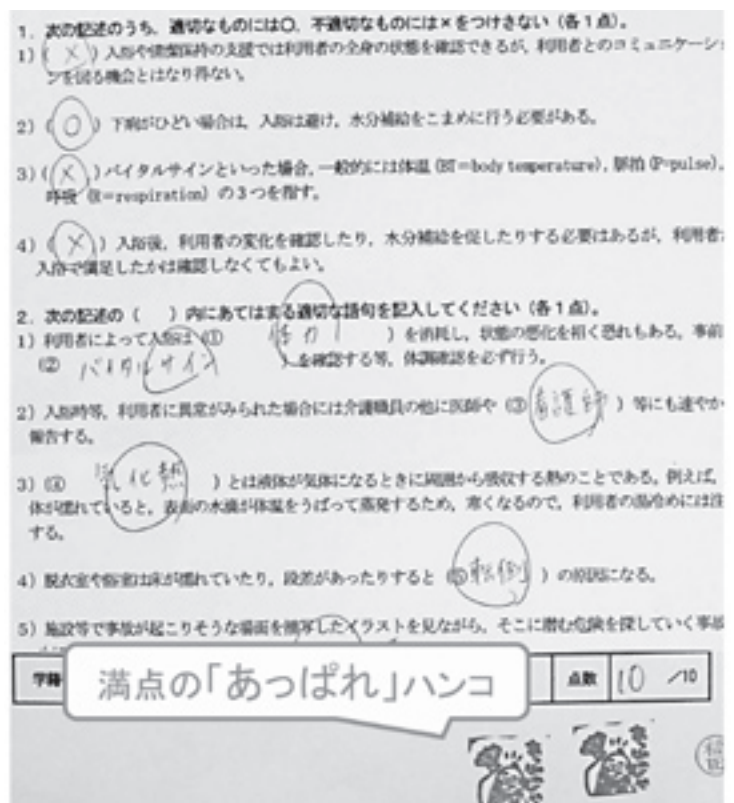 1．次の記述のうち，適切なものには○，不適切なものには×をつけなさい（各1点）。
1)（×）入浴や清潔保持の支援では利用者の全身の状態を確認できるが，利用者とのコミュニケーショ
ンを図る機会とはなり得ない。
2)（○）下痢がひどい場合は，入浴は避け，水分補給をこまめに行う必要がある。
3)（×）バイタルサインといった場合，一般的には体温（BT＝body temperature），脈拍（P＝pulse），
呼吸（R＝respiration）の3つを指す。
4)（×）入浴後，利用者の変化を確認したり，水分補給を促したりする必要はあるが，利用者
入浴で満足したかは確認しなくてもよい。
2．次の記述の（　）内にあてはまる適切な語句を記入してください（各1点）。
1) 利用者によって入浴は（① 体力）を消耗し，状態の悪化を招く恐れもある。事前
（② バイタルサイン）を確認する等，体調確認を必ず行う。
2) 入浴時等，利用者に異常がみられた場合には介護職員の他に医師や（③ 看護師）等にも速やか
報告する。
3)（④ 気化熱）とは液体が気体になるときに周囲から吸収する熱のことである。例えば，
体が濡れていると，表面の水滴が体温をうばって蒸発するため，寒くなるので，利用者の湯冷めには注
する。
4) 脱衣室や浴室は床が濡れていたり，段差があったりすると（⑤ 転倒）の原因になる。
5) 施設等で事故が起こりそうな場面を描写したイラストを見ながら，そこに潜む危険を探していく事故
学籍 点数 10 /10
満点の「あっぱれ」ハンコ